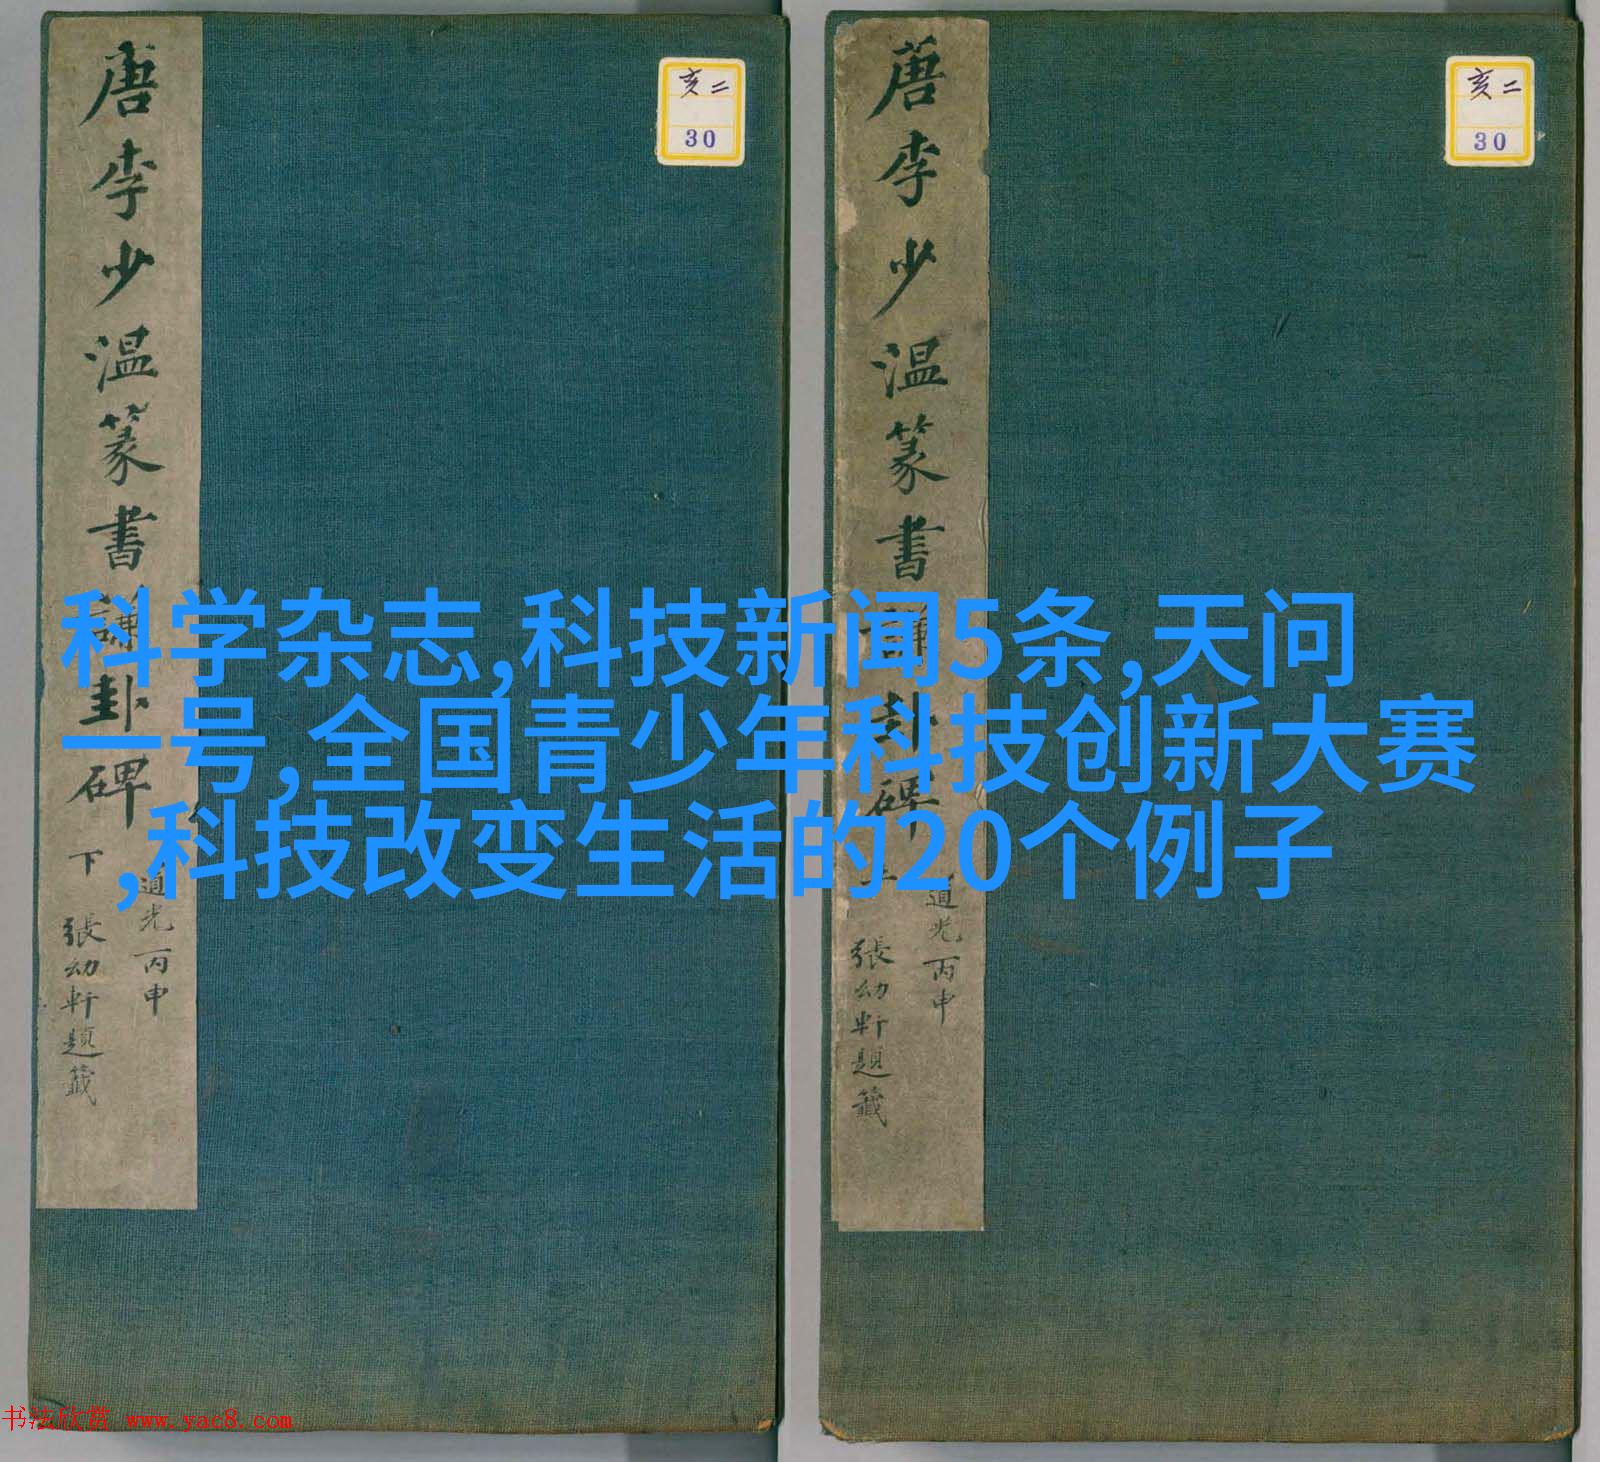 唐李少温篆書謙卦碑 下
道光丙申
張幼軒題籤
亥二
30
唐李少温篆書謙卦碑
道光丙申
張幼軒題籤
亥二
30
科学杂志,科技新闻5条,天问
一号,全国青少年科技创新大赛
,科技改变生活的20个例子
书法欣赏 www.yac8.com